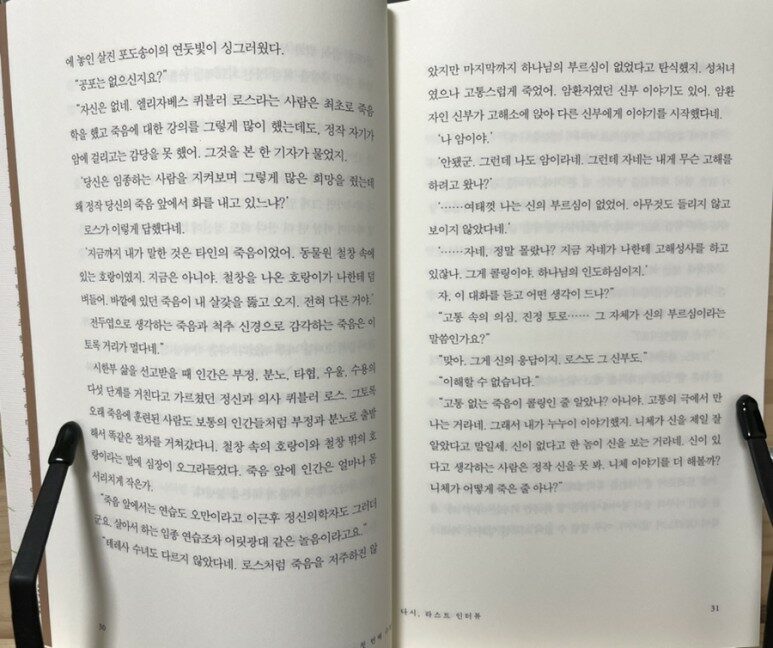 에 놓인 살진 포도송이의 연둣빛이 싱그러웠다.
“공포는 없으신지요?”
“자신은 없네. 엘리자베스 퀴블러 로스라는 사람은 최초로 죽음
학을 했고 죽음에 대한 강의를 그렇게 많이 했는데도, 정작 자기가
암에 걸리고는 감당을 못 했어. 그것을 본 한 기자가 물었지.
‘당신은 임종하는 사람을 지켜보며 그렇게 많은 희망을 줬는데
왜 정작 당신의 죽음 앞에서 화를 내고 있느냐?’
로스가 이렇게 답했다네.
‘지금까지 내가 말한 것은 타인의 죽음이었어. 동물원 철창 속에
있는 호랑이였지. 지금은 아니야. 철창을 나온 호랑이가 나한테 덤
벼들어. 바깥에 있던 죽음이 내 살갗을 뚫고 오지. 전혀 다른 거야.’
전두엽으로 생각하는 죽음과 척추 신경으로 감각하는 죽음은 이
토록 거리가 멀다네.”
시한부 삶을 선고받을 때 인간은 부정, 분노, 타협, 우울, 수용의
다섯 단계를 거친다고 가르쳤던 정신과 의사 퀴블러 로스. 그토록
오래 죽음에 훈련된 사람도 보통의 인간들처럼 부정과 분노로 출발
해서 똑같은 절차를 거쳐갔다니. 철창 속의 호랑이와 철창 밖의 호
랑이라는 말에 심장이 오그라들었다. 죽음 앞에 인간은 얼마나 몸
서리치게 작은가.
“죽음 앞에서는 연습도 오만이라고 이근후 정신의학자도 그러더
군요. 살아서 하는 임종 연습조차 어릿광대 같은 놀음이라고요.”
“테레사 수녀도 다르지 않았다네. 로스처럼 죽음을 저주하진 않
30
았지만 마지막까지 하나님의 부르심이 없었다고 탄식했지. 성처녀
였으나 고통스럽게 죽었어. 암환자였던 신부 이야기도 있어. 암환
자인 신부가 고해소에 앉아 다른 신부에게 이야기를 시작했다네.
‘나 암이야.’
‘안됐군. 그런데 나도 암이라네. 그런데 자네는 내게 무슨 고해를
하려고 왔나?’
‘……여태껏 나는 신의 부르심이 없었어. 아무것도 들리지 않고
보이지 않았다네.’
‘……자네, 정말 몰랐나? 지금 자네가 나한테 고해성사를 하고
있잖나. 그게 콜링이야. 하나님의 인도하심이지.’
자, 이 대화를 듣고 어떤 생각이 드나?”
“고통 속의 의심, 진정 토로…… 그 자체가 신의 부르심이라는
말씀인가요?”
“맞아. 그게 신의 응답이지. 로스도 그 신부도.”
“이해할 수 없습니다.”
“고통 없는 죽음이 콜링인 줄 알았나? 아니야. 고통의 극에서 만
나는 거라네. 그래서 내가 누누이 이야기했지. 니체가 신을 제일 잘
알았다고 말일세. 신이 없다고 한 놈이 신을 보는 거라네. 신이 있
다고 생각하는 사람은 정작 신을 못 봐. 니체 이야기를 더 해볼까?
니체가 어떻게 죽은 줄 아나?”
다시, 라스트 인터뷰
31